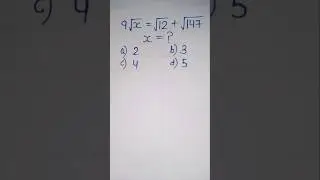 9√x = √12 + √147
x = ?
a) 2 b) 3
c) 4 d) 5